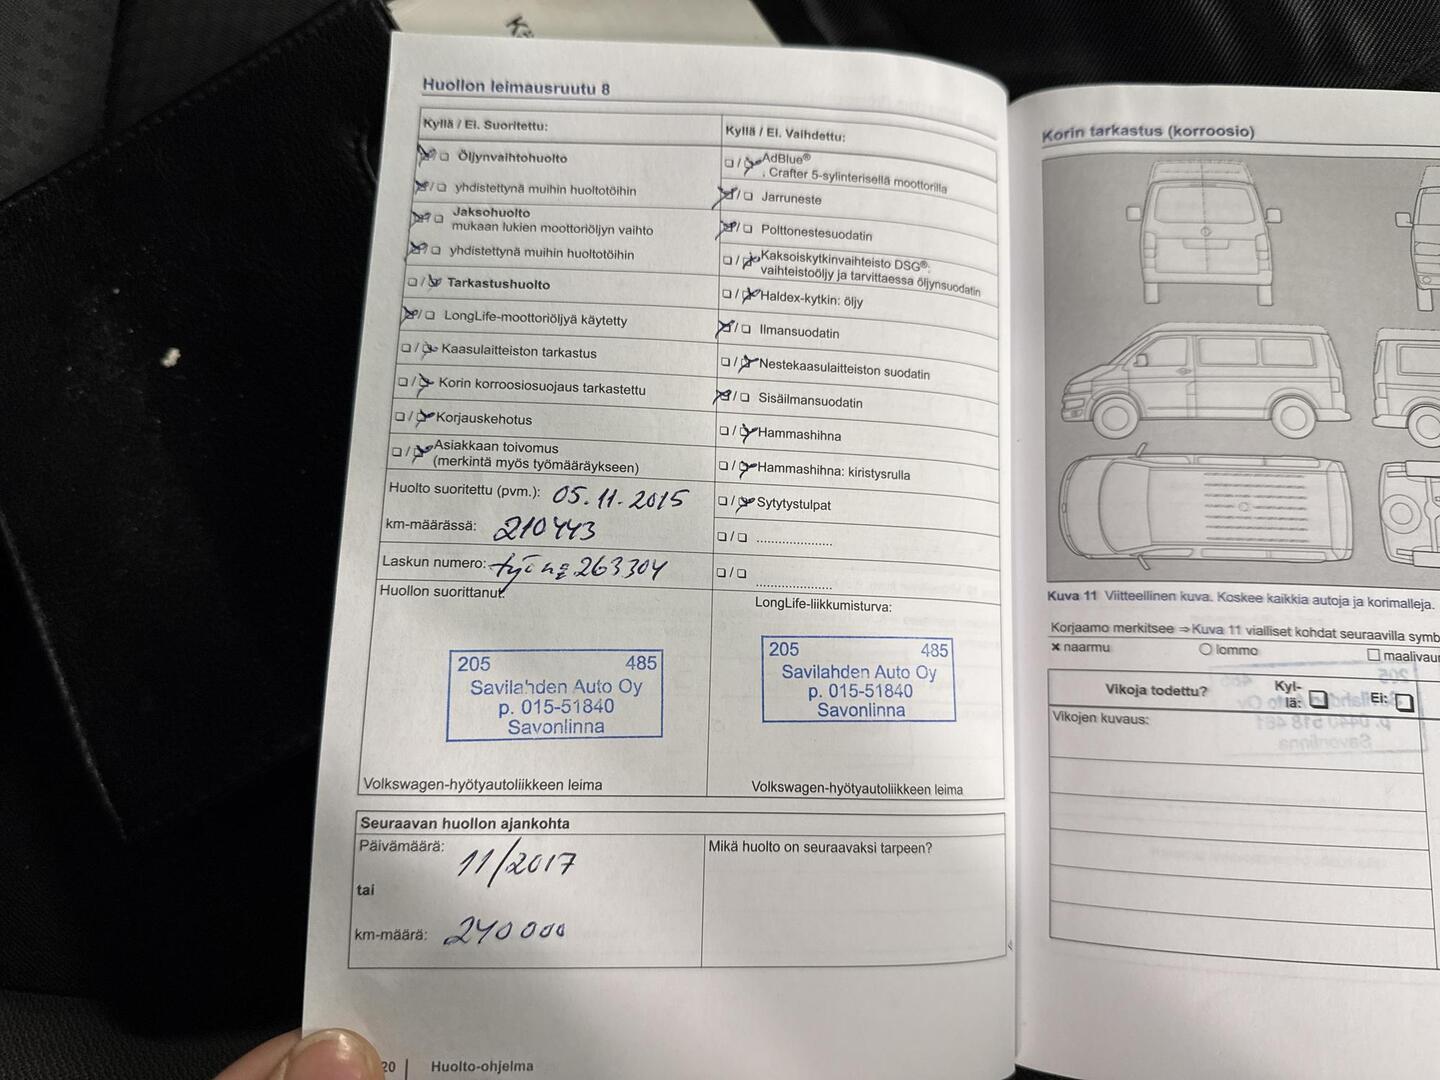 Huollon leimausruutu 8
Kyllä / Ei. Suoritettu:
Öljynvaihtohuolto
yhdistettynä muihin huoltotöihin
Jaksohuolto
mukaan lukien moottoriöljyn vaihto
yhdistettynä muihin huoltotöihin
Tarkastushuolto
LongLife-moottoriöljyä käytetty
Kaasulaitteiston tarkastus
Korin korroosiosuojaus tarkastettu
Korjauskehotus
Asiakkaan toivomus
(merkintä myös työmääräykseen)
Huolto suoritettu (pvm.): 05.11.2015
km-määrässä: 210443
Laskun numero: 263304
Huollon suorittanut:
205 485
Savilahden Auto Oy
p. 015-51840
Savonlinna
Volkswagen-hyötyautoliikkeen leima
Kyllä / Ei. Vaihdettu:
AdBlue®
. Crafter 5-sylinterisellä moottorilla
Jarruneste
Polttonestesuodatin
Kaksoiskytkinvaihteisto DSG®:
vaihteistoöljy ja tarvittaessa öljynsuodatin
Haldex-kytkin: öljy
Ilmansuodatin
Nestekaasulaitteiston suodatin
Sisäilmansuodatin
Hammashihna
Hammashihna: kiristysrulla
Sytytystulpat
LongLife-liikkumisturva:
205 485
Savilahden Auto Oy
p. 015-51840
Savonlinna
Volkswagen-hyötyautoliikkeen leima
Seuraavan huollon ajankohta
Päivämäärä: 11/2017
tai
km-määrä: 240000
Mikä huolto on seuraavaksi tarpeen?
20 | Huolto-ohjelma
Korin tarkastus (korroosio)
Kuva 11 Viitteellinen kuva. Koskee kaikkia autoja ja korimalleja.
Korjaamo merkitsee ⇒Kuva 11 vialliset kohdat seuraavilla symb
naarmu lommo maalivaur
Vikoja todettu? Kyl-
lä: Ei:
Vikojen kuvaus: